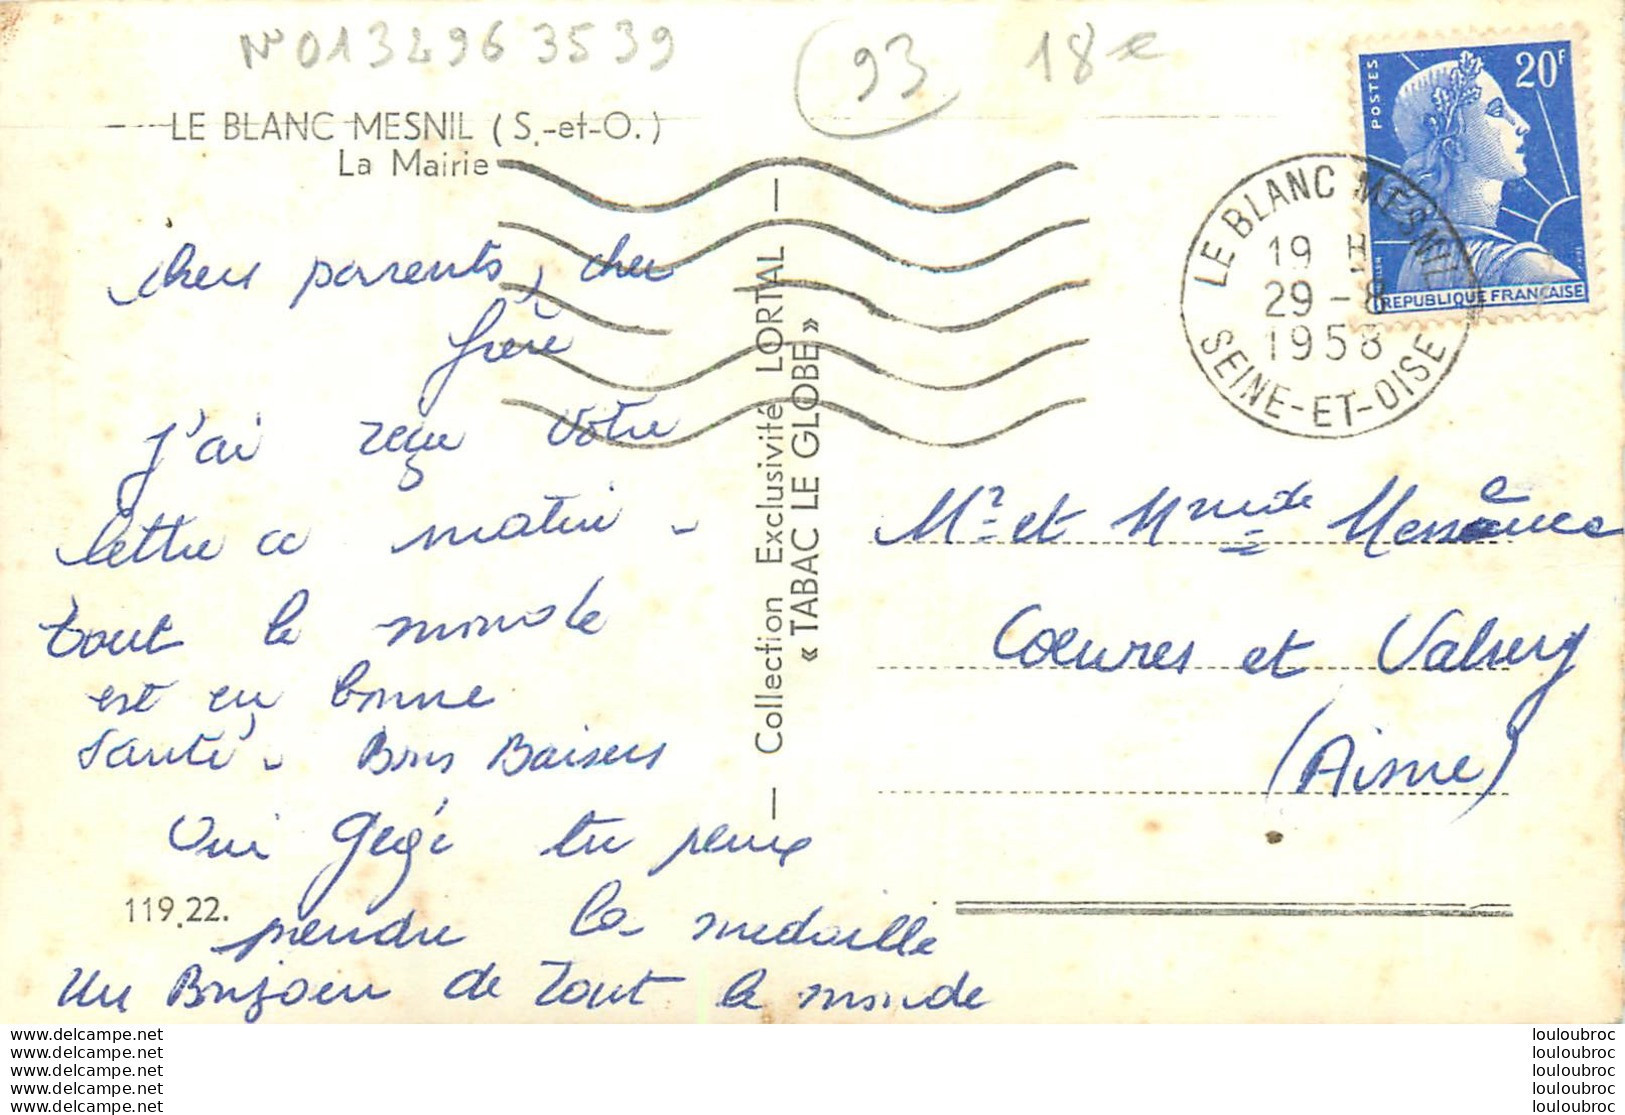 N° 013296 3539
93
18 €
LE BLANC MESNIL (S.-et-O.)
La Mairie
POSTES
20F
REPUBLIQUE FRANÇAISE
LE BLANC MESNIL
19 H
29-8
1958
SEINE-ET-OISE
chers parents, cher
frère
J'ai reçu votre
lettre ce matin -
tout le monde
est en bonne
santé - Bons Baisers
Oui Gegé tu peux
prendre la medaille
Un Bonjour de tout le monde
119.22.
— Collection Exclusivité LORTAL —
« TABAC LE GLOBE »
Mr et Mme
Coeuvres et Valsery
(Aisne)
www.delcampe.net
www.delcampe.net
www.delcampe.net
www.delcampe.net
www.delcampe.net
louloubroc
louloubroc
louloubroc
louloubroc
louloubroc